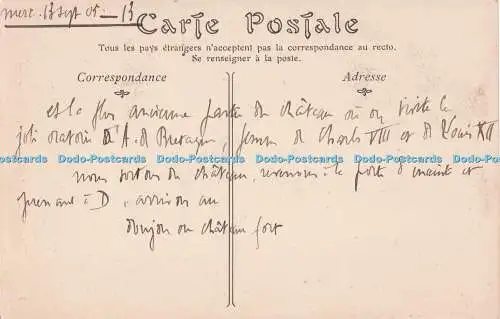 merc. 13 sept 05 — 13
Carte Postale
Tous les pays étrangers n'acceptent pas la correspondance au recto.
Se renseigner à la poste.
Correspondance
Adresse
est la plus ancienne partie du château où on visite le
joli oratoire d'A. de Bretagne, femme de Charles VIII et de Louis XII
Dodo-Postcards Dodo-Postcards Dodo-Postcards Dodo-Postcards Dodo-Postcards Dodo-Postcards
nous sortons du château, revenons à la porte d'entrée et
prenant à D, arrivons au
donjon ou château fort